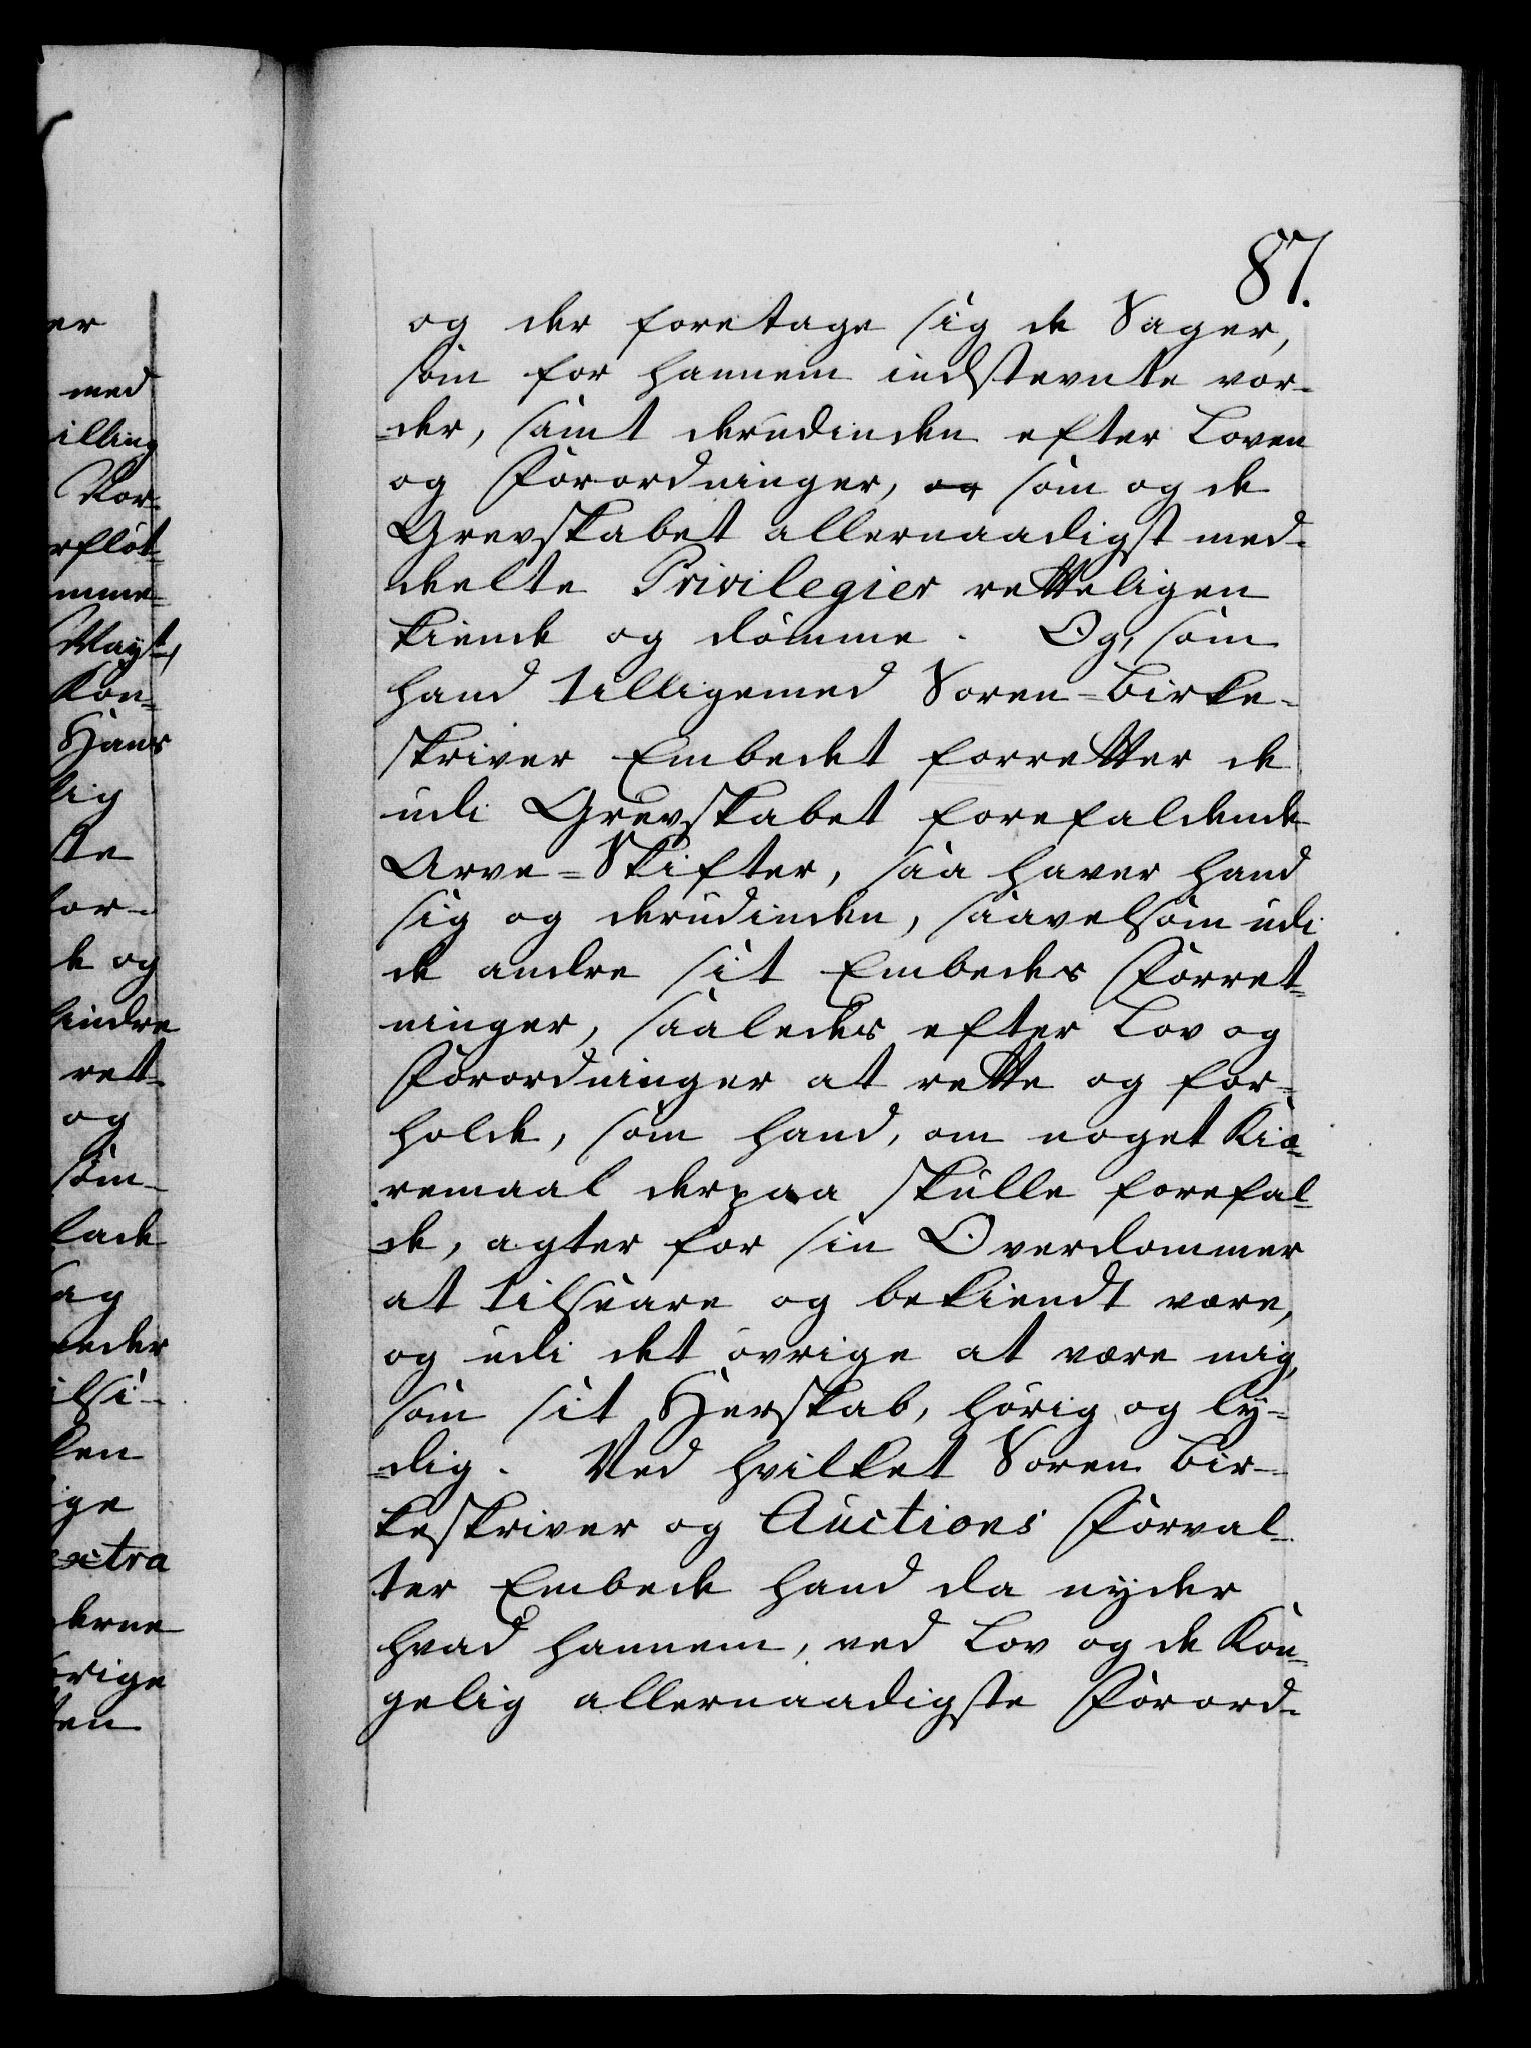 87.
og der foretage sig de Sager,
som for hannem indstevnte vor-
=der, samt derudinden efter Loven
og Forordninger, og som og de
Grevskabet allernaadigst med-
deelte Privilegier retteligen
kiende og dömme. Og, som
hand tilligemed Soren-Birke-
skriver Embedet forretter de
udi Grevskabet forefaldende
Arve=Skifter, saa haver hand
sig og derudinden, saavelsom udi
de andre sit Embedes Forret=
ninger, saaledes efter Lov og
Forordninger at rette og for=
holde, som hand, om noget Kiæ=
remaal derpaa skulle forefal=
de, agter for sin Overdommer
at tilsvare og bekiendt være,
og udi det øvrige at være mig,
som sit Herskab, hörig og ly=
=dig. Ved hvilket Soren Bir-
keskriver og Auctions Forval-
ter Embede hand da nyder
hvad hannem, ved Lov og de Kon=
gelig allernaadigste Forord-
er
med
illing
Kor-
rflöt-
mme-
May.t,
Kon=
Hans
lig
ste
for-
de og
hindre
ret-
og
söm-
lade
sag
ilsi-
ken
ige
extra
derne
örige
ten